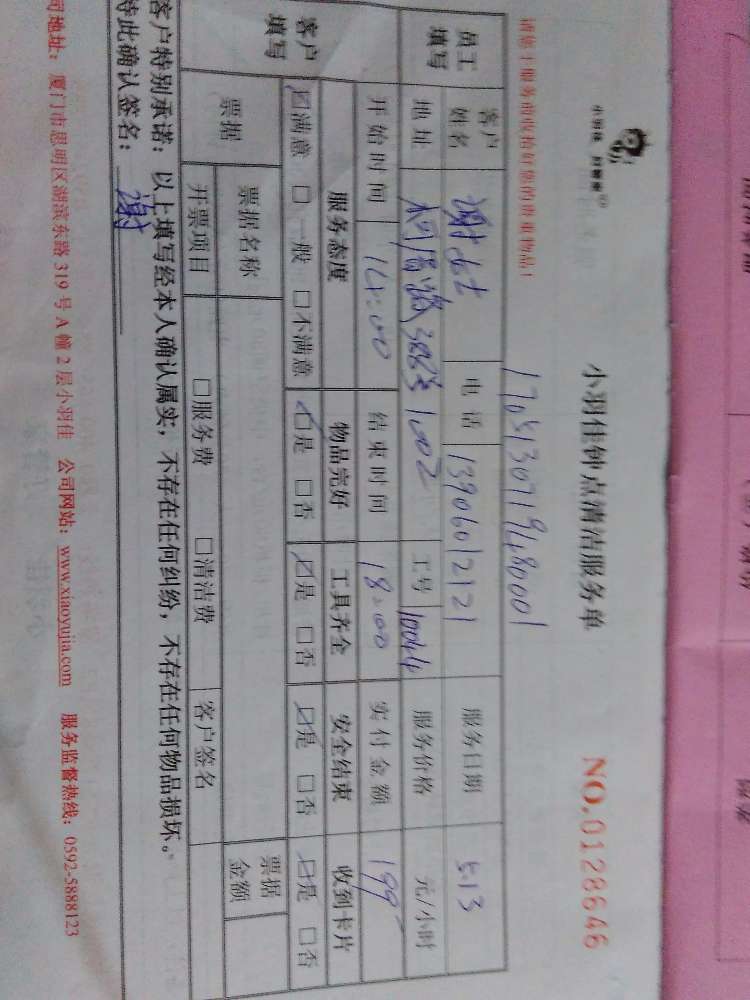 小羽佳钟点清洁服务单
NO.0128646
小羽佳 ®
1705130719480001
请您于服务前收拾好您的贵重物品!
员工填写 客户姓名 谢女士 电话 13906012121 服务日期 5.13
地址 1002 工号 10044 服务价格 元/小时
开始时间 14:00 结束时间 18:00 实付金额 199
客户填写 服务态度 物品完好 工具齐全 安全结束 收到卡片
☑满意 □一般 □不满意 ☑是 □否 ☑是 □否 ☑是 □否 ☑是 □否
票据 票据名称 票据金额
开票项目 □服务费 □清洁费 客户签名
客户特别承诺:以上填写经本人确认属实,不存在任何纠纷,不存在任何物品损坏。
特此确认签名:谢
司地址:厦门市思明区湖滨东路319号A幢2层小羽佳 公司网站:www.xiaoyujia.com 服务监督热线:0592-5888123